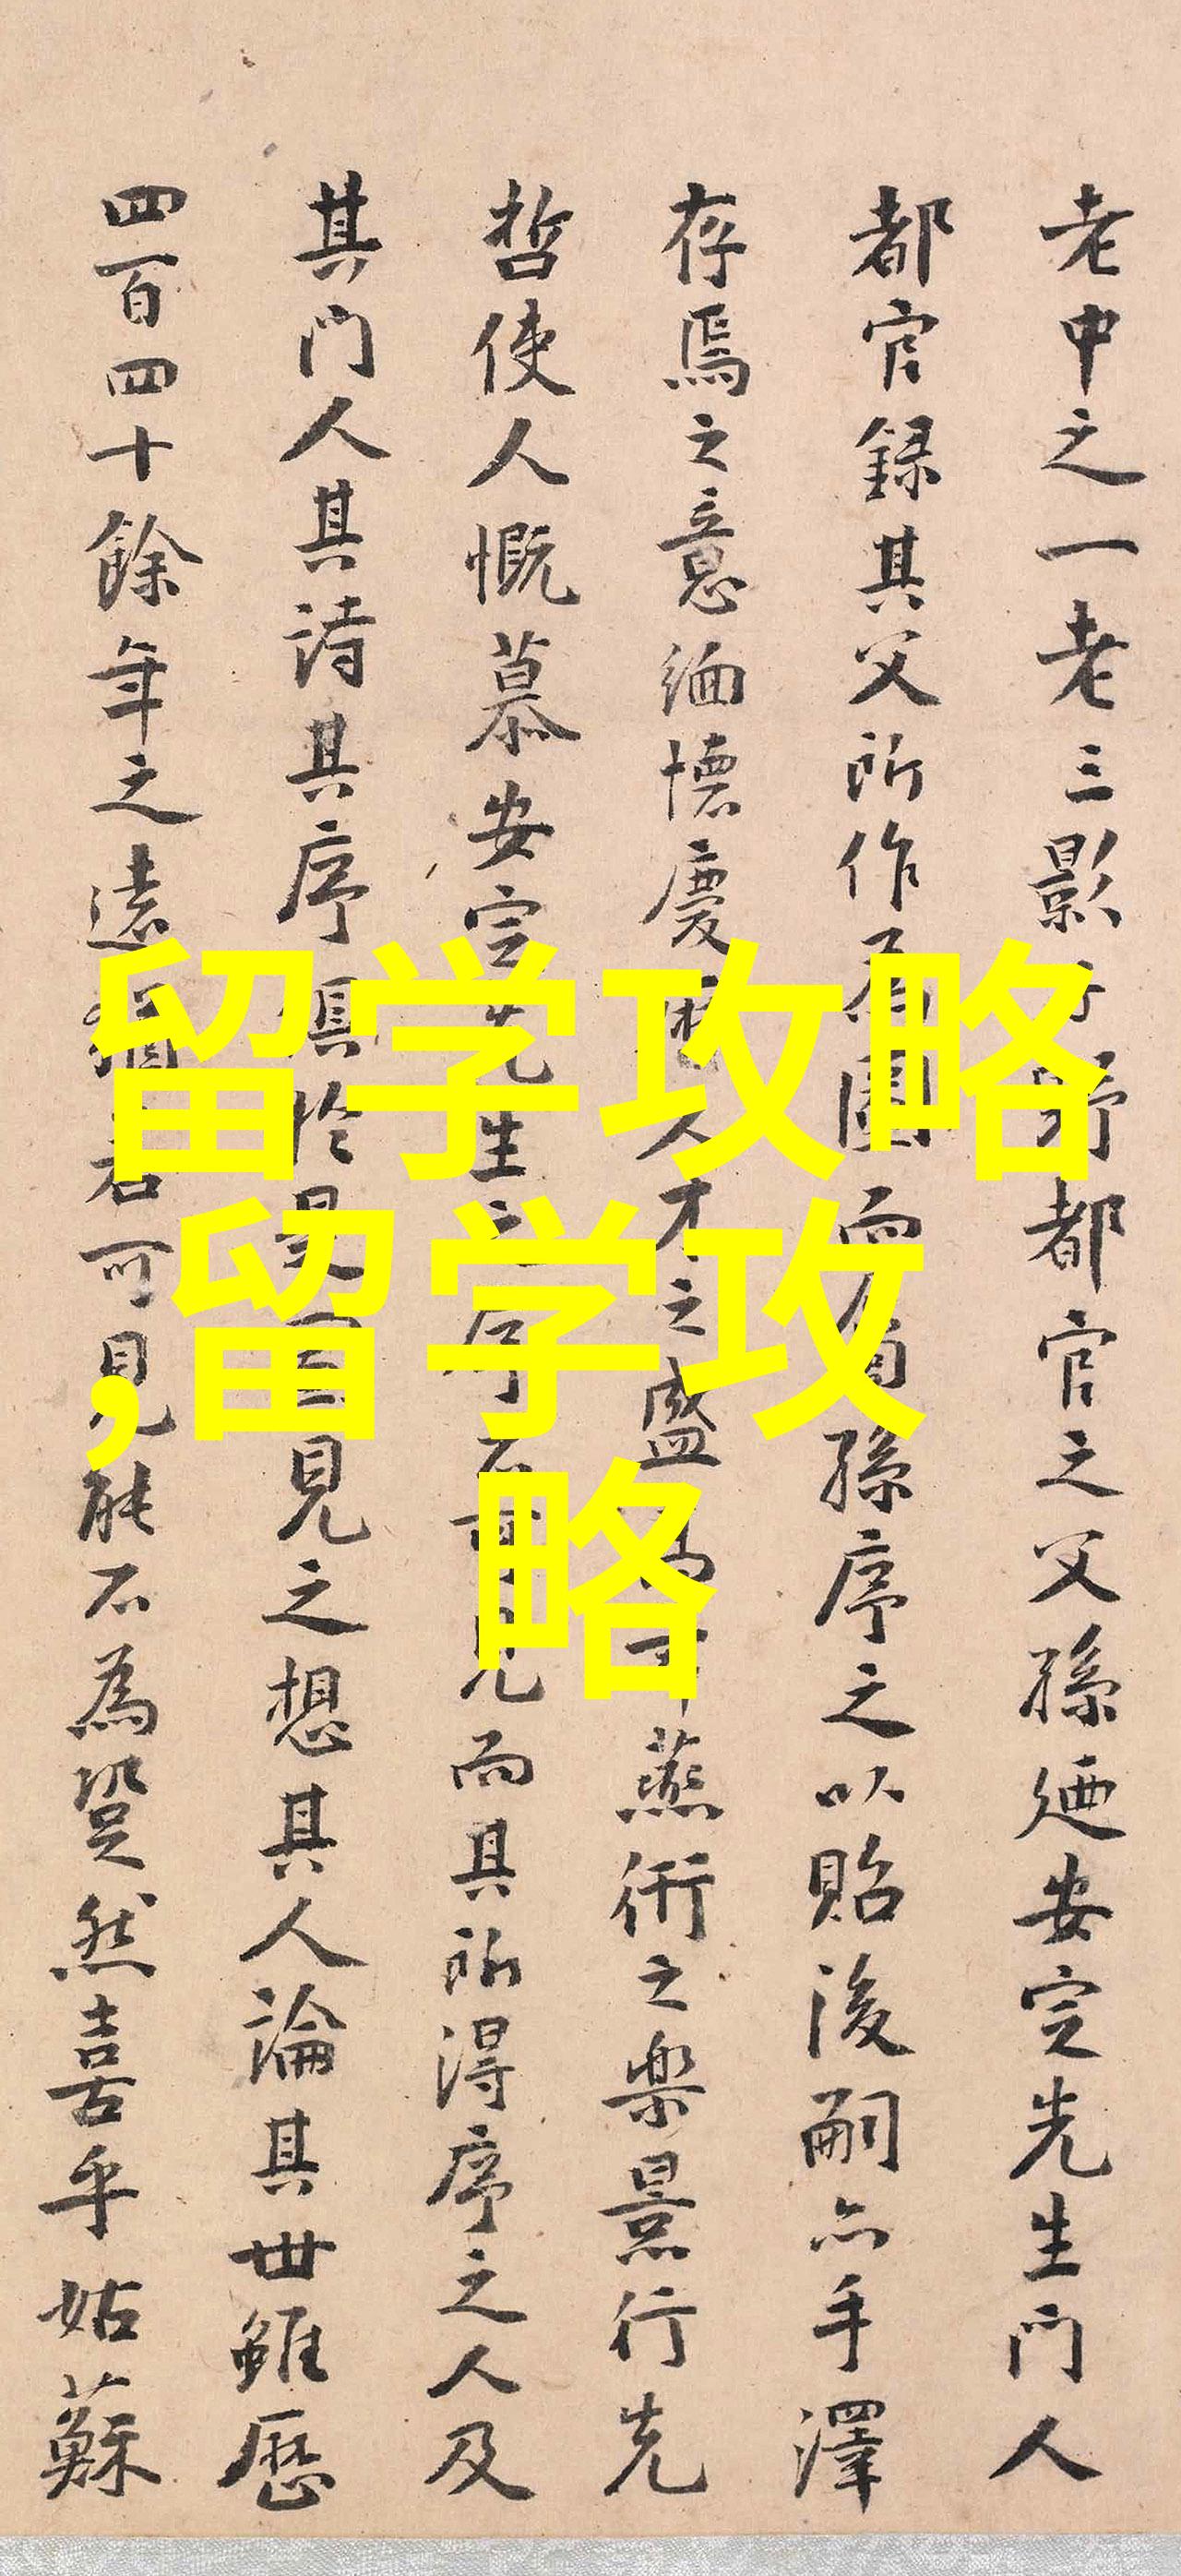 老中之一老三影都官之父孫廼安定先生門人
都官録其父所作圖而孫序之以貽後嗣亦手澤
存焉之意緬懷慶人才之盛燕衎之樂景行先
哲使人慨慕安定先生序而其所得序之人及
其門人其詩其序俱見之想其人論其世雖歷
四百四十餘年之遠猶若可見能不為跫然喜乎姑蘇
留学攻略
,留学攻
略